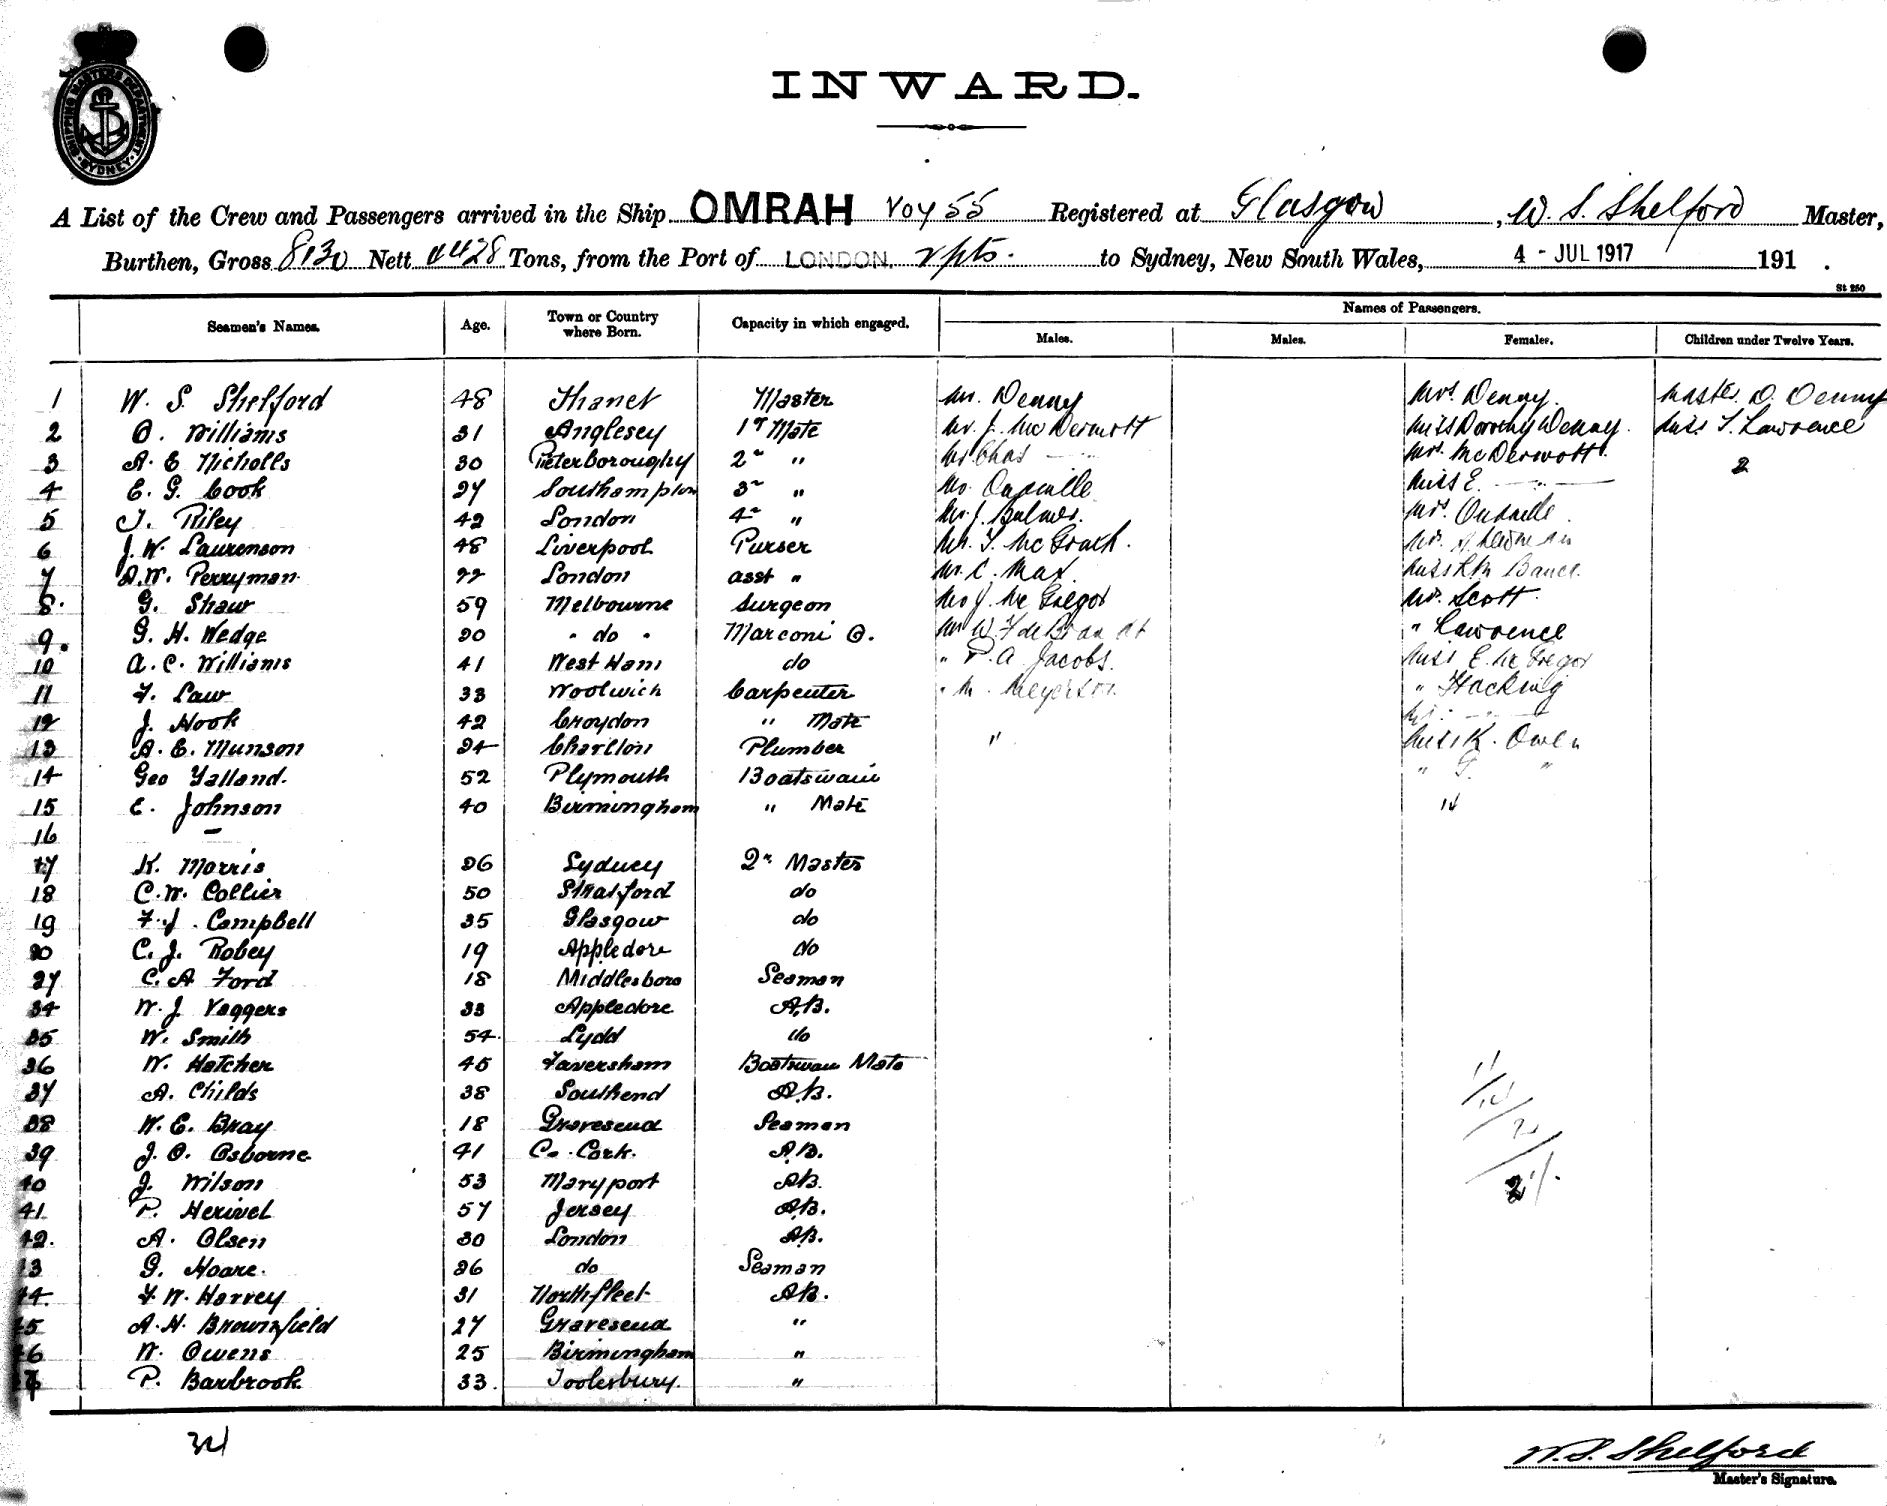 SHIPPING MASTERS DEPARTMENT SYDNEY
INWARD.
A List of the Crew and Passengers arrived in the Ship OMRAH Voy 55 Registered at Glasgow, W. S. Shelford Master,
Burthen, Gross 8130 Nett 4428 Tons, from the Port of LONDON. & pts. to Sydney, New South Wales, 4 - JUL 1917 191 .
St 250
Names of Passengers.
Seamen's Names. Age. Town or Country where Born. Capacity in which engaged. Males. Males. Females. Children under Twelve Years.
1 W. S. Shelford 48 Thanet Master Mr. Denny Mrs. Denny. Master D. Denny
2 O. Williams 31 Anglesey 1st Mate Mr. J. McDermott Miss Dorothy Denny. Miss T. Lawrence
3 A. E Nicholls 30 Peterborough 2nd " Mr Chas — " — Mrs. McDermott. 2
4 E. G. Cook 27 Southampton 3rd " Mr. Miss E. — " —
5 T. Riley 42 London 4th " Mr. J. Balmer. Mrs.
6 J. W. Laurenson 48 Liverpool Purser Mr. T. McGrath.
7 A. W. Perryman 22 London asst " Mr. C. Max. Miss
8. G. Shaw 59 Melbourne Surgeon Mr J. McGregor Mrs. Scott.
9. G. H. Wedge 20 " do " Marconi O. Mr W. " Lawrence
10 A. C. Williams 41 West Ham do " P. A. Jacobs. Miss E. McGregor
11 F. Law 33 Woolwich Carpenter " M. Meyerson " Hocking
12 J. Hook 42 Croydon " Mate
13 A. E. Munson 24 Charlton Plumber 11 Miss K. Owen
14 Geo Yalland. 52 Plymouth Boatswain " G. "
15 E. Johnson 40 Birmingham " Mate 14
16 —
17 K. Morris 26 Sydney 2nd Master
18 C. W. Collier 50 Stratford do
19 F. J. Campbell 35 Glasgow do
20 C. J. Robey 19 Appledore do
27 C. A Ford 18 Middlesboro Seaman
34 W. J. Vaggers 33 Appledore A.B.
35 W. Smith 54 Lydd do
36 W. Hatcher 45 Faversham Boatswain Mate
37 A. Childs 38 Southend A.B. 11
38 W. E. Bray 18 Gravesend Seaman 14
39 J. O. Osborne 41 Co. Cork. A.B. 2
40 J. Wilson 53 Maryport AB. 27.
41 P. Herivel 57 Jersey AB.
42. A. Olsen 30 London AB.
43 G. Hoare. 26 do Seaman
44. F. W. Harvey 31 Northfleet AB.
45 A. H. Brownfield 27 Gravesend "
46 W. Owens 25 Birmingham "
47 P. Barbrook 33. Toolesbury. "
34
W. S. Shelford
Master's Signature.